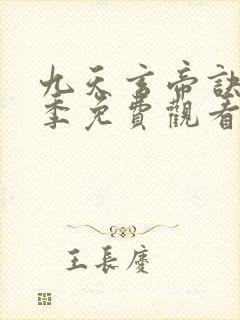 九天玄帝訣
季免費觀看
王長慶